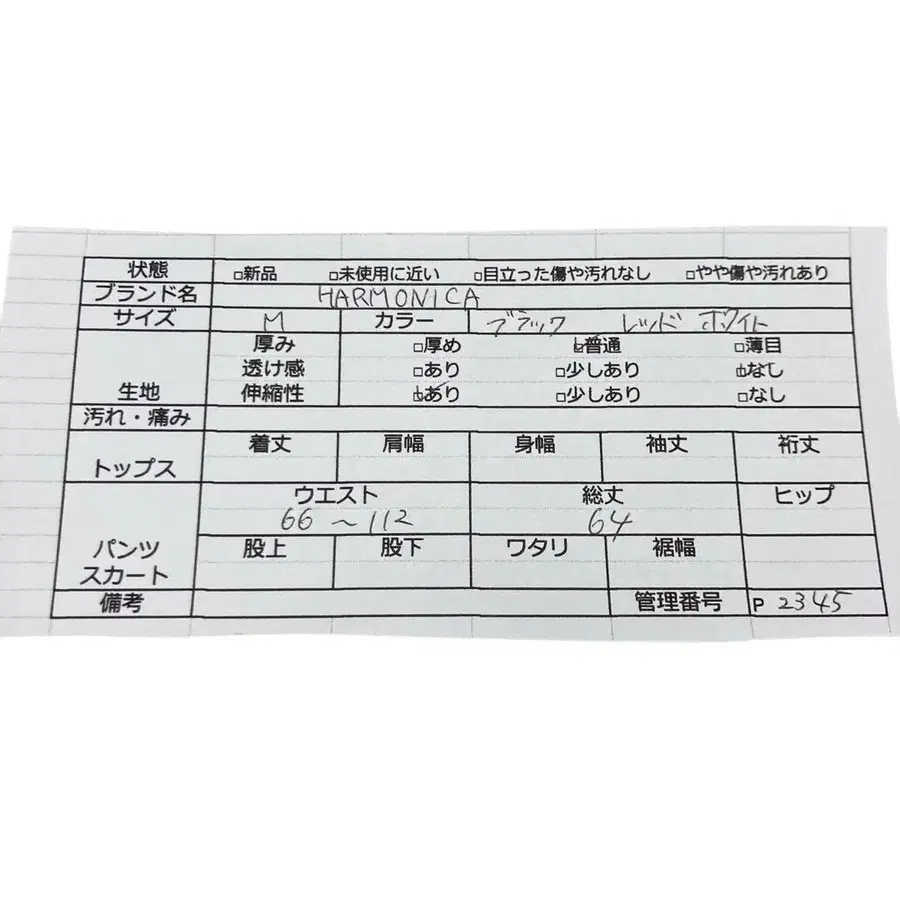 状態 □新品 □未使用に近い □目立った傷や汚れなし □やや傷や汚れあり
ブランド名 HARMONICA
サイズ M カラー ブラック レッド ホワイト
厚み □厚め ☑普通 □薄目
透け感 □あり □少しあり ☑なし
生地 伸縮性 ☑あり □少しあり □なし
汚れ・痛み
着丈 肩幅 身幅 袖丈 裄丈
トップス
ウエスト 総丈 ヒップ
66 〜 112 64
パンツ 股上 股下 ワタリ 裾幅
スカート
備考 管理番号 P 2345